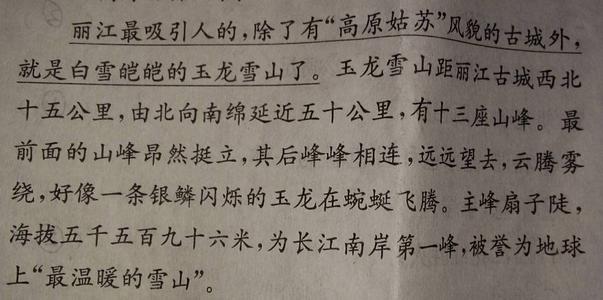 丽江最吸引人的,除了有“高原姑苏”风貌的古城外,
就是白雪皑皑的玉龙雪山了。玉龙雪山距丽江古城西北
十五公里,由北向南绵延近五十公里,有十三座山峰。最
前面的山峰昂然挺立,其后峰峰相连,远远望去,云腾雾
绕,好像一条银鳞闪烁的玉龙在蜿蜒飞腾。主峰扇子陡,
海拔五千五百九十六米,为长江南岸第一峰,被誉为地球
上“最温暖的雪山”。